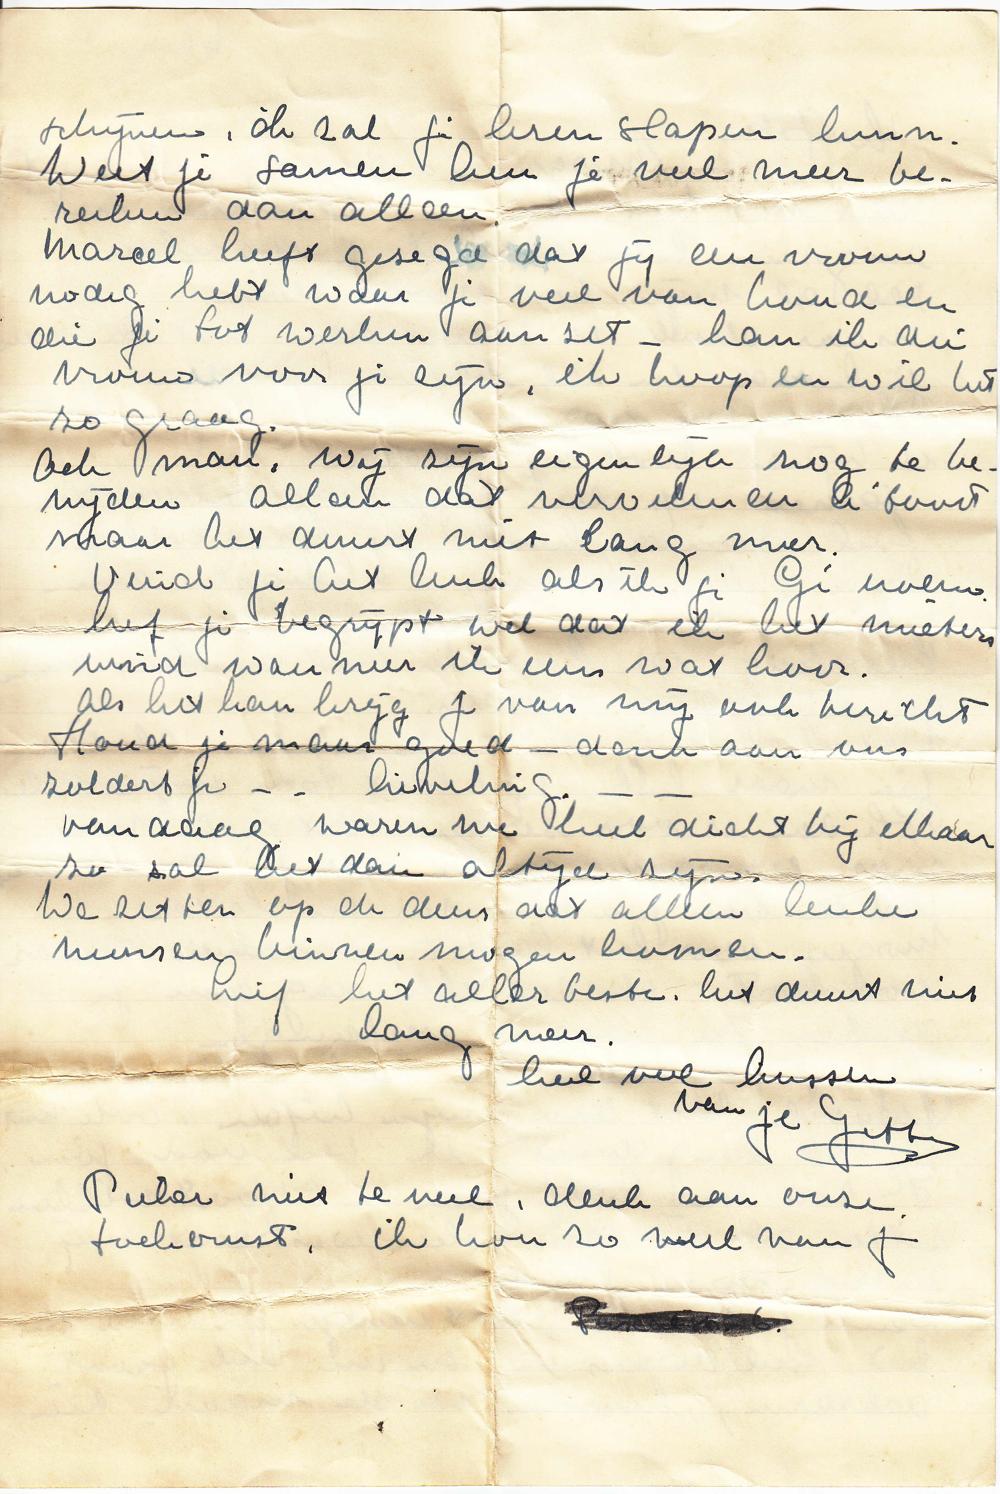 schijnen, ik zal je leren slapen hoor.
Weet je samen kun je veel meer be-
reiken dan alleen.
Marcel heeft gezegd dat jij een vrouw
nodig hebt waar je veel van houd en
die je tot werken aanzet – kan ik die
vrouw voor je zijn, ik hoop en wil het
zo graag.
Och man, wij zijn eigenlijk nog te be-
nijden alleen dat
maar het duurt niet lang meer.
Vind je het leuk als ik je Gé noem.
lief je begrijpt wel dat ik het mieters
vind wanneer ik eens wat hoor.
als het kan krijg je van mij ook bericht
Houd je maar goed – denk aan ons
zoldertje – – lieveling. – –
vandaag waren we heel dicht bij elkaar
zo zal het dan altijd zijn.
We zetten op de deur dat alleen leuke
mensen binnen mogen komen.
lief het allerbeste. het duurt niet
lang meer.
heel veel kussen
van je
Pieker niet te veel, denk aan onze
toekomst, ik hou zo veel van je